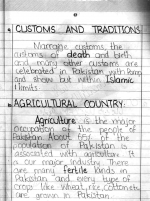 CUSTOMS AND TRADITIONS
Marriage customs, the
customs of death and birth
and many other customs are
celebrated in Pakistan with pomp
and show but within Islamic
limits.
AGRICULTURAL COUNTRY:
Agriculture is the major
occupation of the people of
Pakistan. About 65% of the
population of Pakistan is
associated with agriculture. It
is our major industry. There
are many fertile lands in
Pakistan and every type of
crops like wheat, rice, cotton etc
are grown in Pakistan.